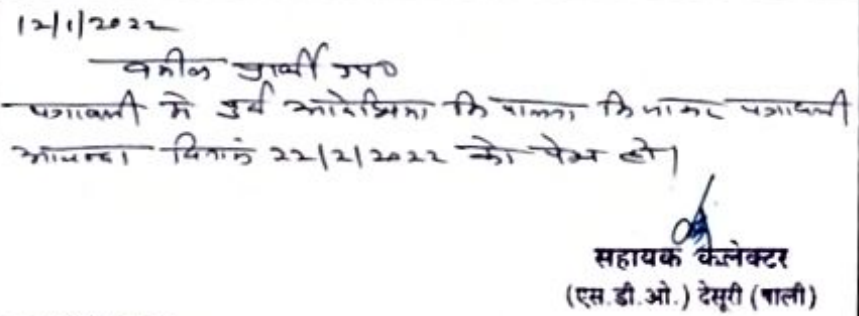 12/1/2022
वकील प्रार्थी उप०
पत्रावली मे पुर्व आदेशिका कि पालना कि जाकर पत्रावली
आयन्दा दिनांक 22/2/2022 को पेश हो।
सहायक कलेक्टर
(एस.डी.ओ.) देसूरी (पाली)